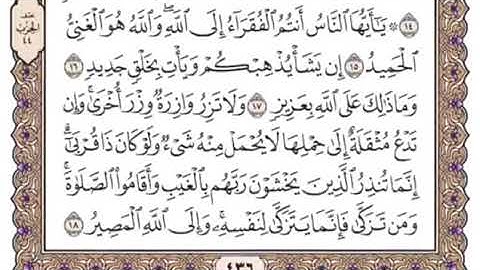 ۞ يَٰٓأَيُّهَا ٱلنَّاسُ أَنتُمُ ٱلْفُقَرَآءُ إِلَى ٱللَّهِ ۖ وَٱللَّهُ هُوَ ٱلْغَنِىُّ
ٱلْحَمِيدُ ١٥ إِن يَشَأْ يُذْهِبْكُمْ وَيَأْتِ بِخَلْقٍ جَدِيدٍ ١٦
وَمَا ذَٰلِكَ عَلَى ٱللَّهِ بِعَزِيزٍ ١٧ وَلَا تَزِرُ وَازِرَةٌ وِزْرَ أُخْرَىٰ ۚ وَإِن
تَدْعُ مُثْقَلَةٌ إِلَىٰ حِمْلِهَا لَا يُحْمَلْ مِنْهُ شَىْءٌ وَلَوْ كَانَ ذَا قُرْبَىٰٓ ۗ
إِنَّمَا تُنذِرُ ٱلَّذِينَ يَخْشَوْنَ رَبَّهُم بِٱلْغَيْبِ وَأَقَامُوا۟ ٱلصَّلَوٰةَ ۚ
وَمَن تَزَكَّىٰ فَإِنَّمَا يَتَزَكَّىٰ لِنَفْسِهِۦ ۚ وَإِلَى ٱللَّهِ ٱلْمَصِيرُ ١٨
٤٣٦